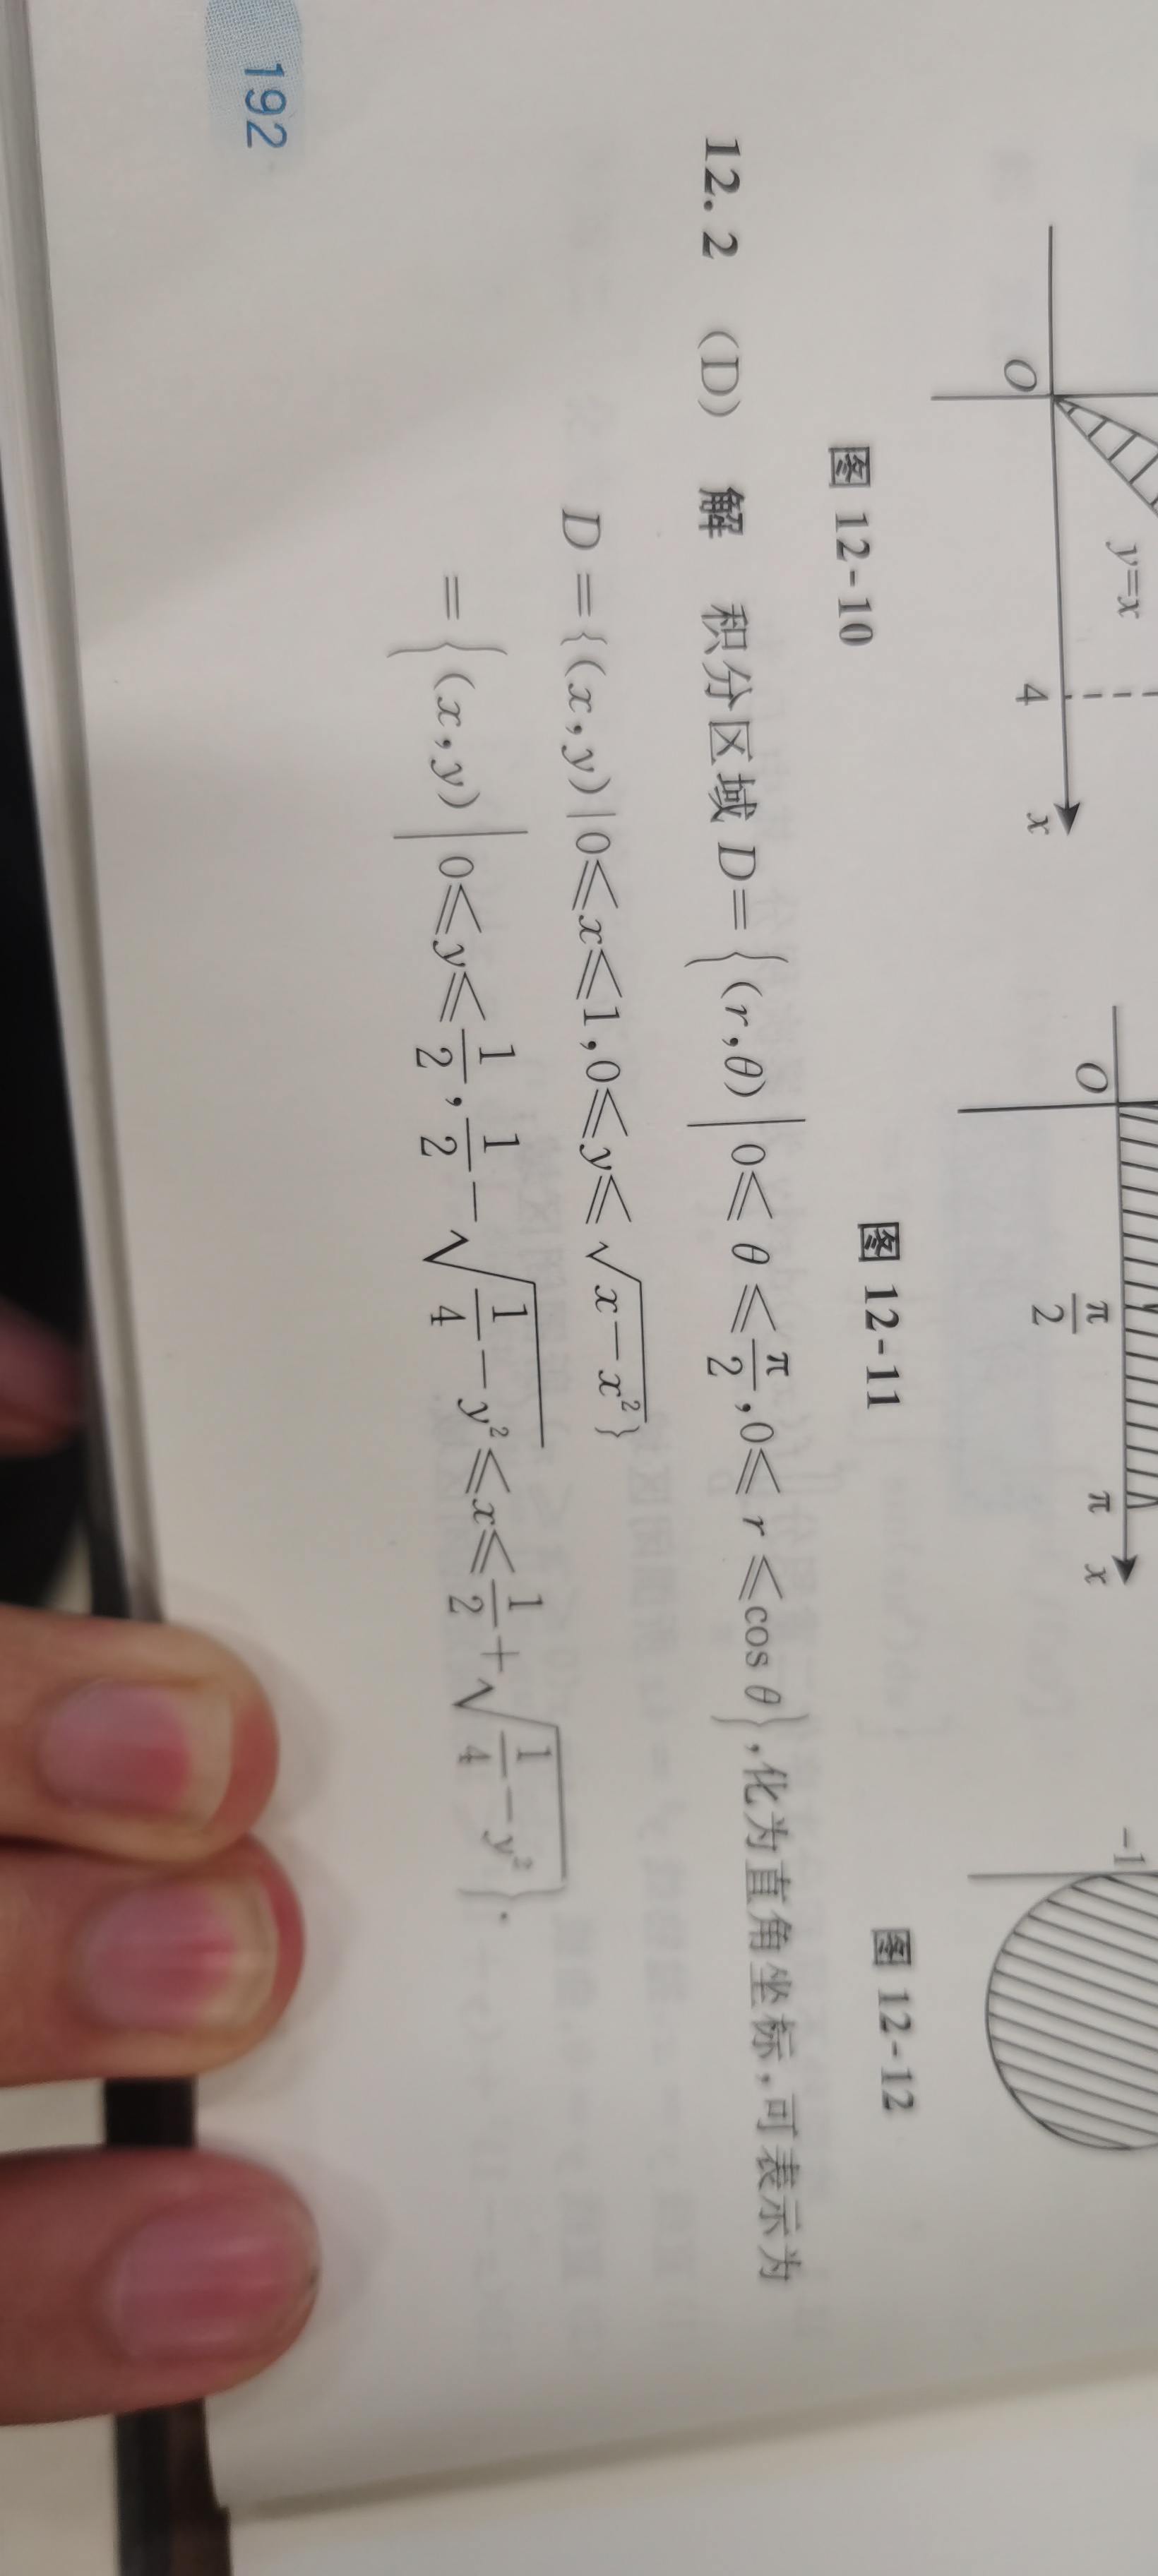 O
y=x
4
x
O
π/2
π
x
-1
图 12-10
图 12-11
图 12-12
12.2 (D) 解 积分区域 D={(r,θ)|0≤θ≤π/2,0≤r≤cos θ},化为直角坐标,可表示为
D={(x,y)|0≤x≤1,0≤y≤√(x-x²)}
={(x,y)|0≤y≤1/2,1/2-√(1/4-y²)≤x≤1/2+√(1/4-y²)}.
192